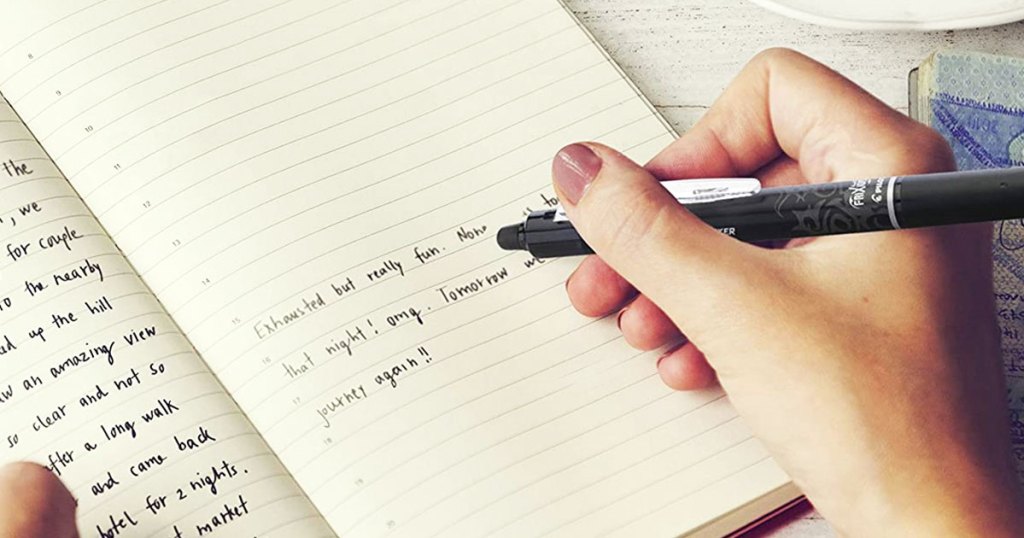 the
, we
for couple
to the nearby
up the hill
an amazing view
so clear and not so
after a long walk
and came back
hotel for 2 nights.
market
8
9
10
11
12
13
14
15
Exhausted but really fun. None to
16
that night! omg. Tomorrow we
17
journey again!!
18
19
20
FRIXION
PILOT